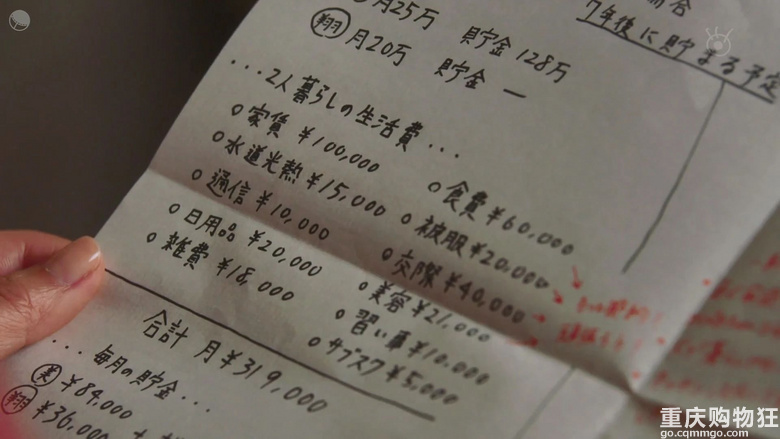 月25万 貯金 128万
翔 月20万 貯金 ー
7年後に貯まる予定
・・・2人暮らしの生活費・・・
○家賃 ¥100,000
○水道光熱 ¥15,000
○通信 ¥10,000
○日用品 ¥20,000
○雑費 ¥18,000
○食費 ¥60,000
○被服 ¥20,000
○交際 ¥40,000
○美容 ¥21,000
○習い事 ¥10,000
○サブスク ¥5,000
合計 月¥319,000
・・・毎月の貯金・・・
美 ¥84,000
翔 ¥36,000
重庆购物狂
go.cqmmgo.com